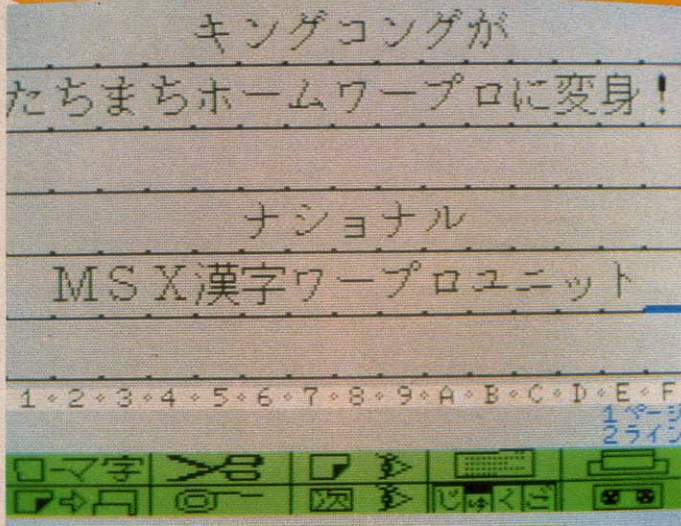 キングコングが
たちまちホームワープロに変身！
ナショナル
MSX漢字ワープロユニット
1 2 3 4 5 6 7 8 9 A B C D E F
1ページ
2ライン
ローマ字
次
じゅくご